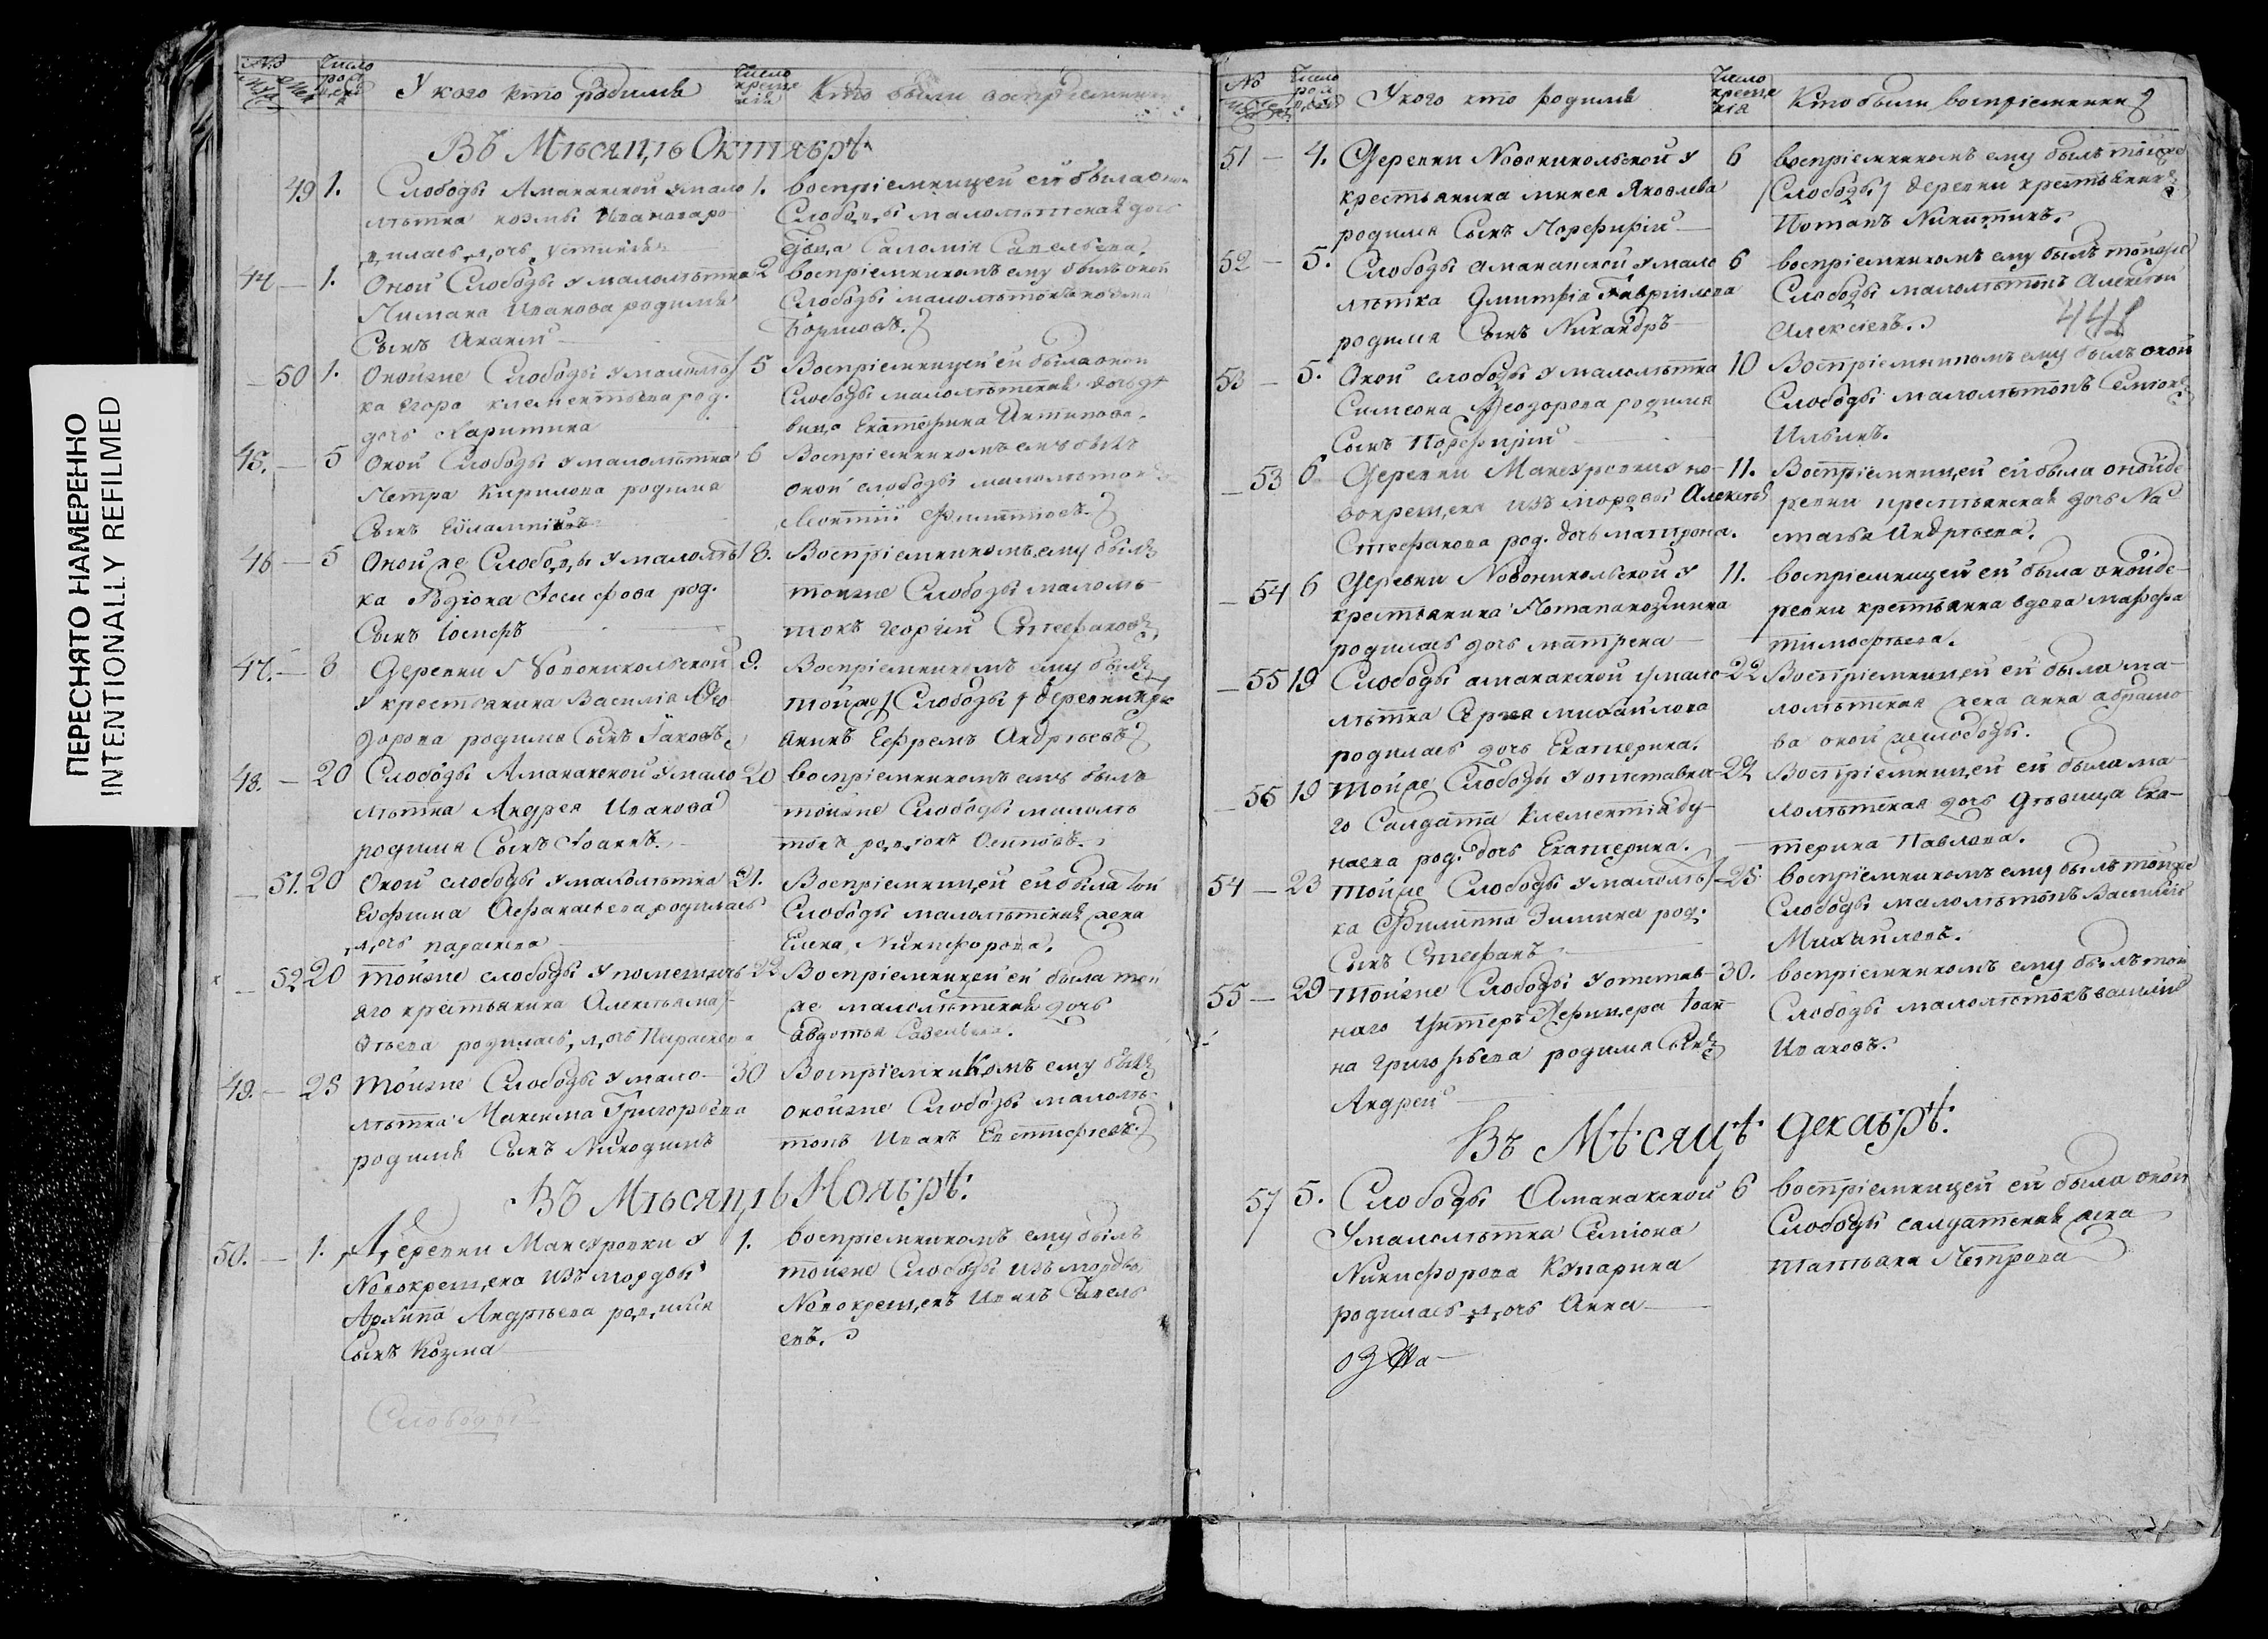 ПЕРЕСНЯТО НАМЕРЕННО
INTENTIONALLY REFILMED
№
Число
У кого кто родился
Число креще нія
Кто были воспріемники
Въ Мѣсяцѣ Октябрѣ
49 1. Слободы Амананской у мало
лѣтка козмы Иванова ро
дилась дочь Устинія
1. воспріемницей ей была оной
Слободы малолѣтская дочь
Саломія Савельева.
44 — 1. Оной Слободы у малолѣтка
Пимана Иванова родился
Сынъ Ананій
2 воспріемникомъ ему былъ оной
Слободы малолѣтокъ козма
Борисовъ.
50 1. Онойже Слободы у малолѣт
ка Егора клементьева род.
дочь Харитина
5 Воспріемницей ей была оной
Слободы малолѣтская дочь дѣ
вица Екатерина Антипова.
45. — 5 Оной Слободы у малолѣтка
Петра Кирилова родился
Сынъ Евлампій
6 Воспріемникомъ ему былъ
оной слободы малолѣток
Леонтій Филиповъ.
46 — 5 Оной же Слободы у малолѣт
ка Родіона Іосифова род.
Сынъ Іосифъ
8. Воспріемникомъ ему былъ
тойже Слободы малолѣ
токъ Георгій Стефановъ
47. — 8 Деревни Новоникольской
у крестьянина Василія Фео
дорова родился Сынъ Іаковъ
9. Воспріемникомъ ему былъ
тойже Слободы деревни кре
янинъ Ефремъ Андрѣевъ
48. — 20 Слободы Амананской у мало
лѣтка Андрея Иванова
родился Сынъ Іоаннъ.
20 воспріемникомъ ему былъ
тойже Слободы малолѣ
токъ родіонъ Осиповъ.
51. 20 Оной слободы у малолѣтка
Евфима Афанасьева родилась
дочь параскева
21. Воспріемницей ей была той
Слободы малолѣтская жена
Елена Никифорова.
52 20 тойже слободы у помещичь
яго крестьянина Алексѣя
родилась дочь Параскева
22 Воспріемницей ей была той
же малолѣтская дочь
Авдотья Савельева.
49. — 28 Тойже Слободы у мало
лѣтка Максима Григорьева
родился Сынъ Никодимъ
30 Воспріемникомъ ему былъ
онойже Слободы малолѣ
токъ Иванъ Евстифіевъ.
Въ Мѣсяцѣ Ноябрѣ:
50. — 1. Деревни Мансуровки у
Новокрещена изъ мордвы
Архипа Андрѣева родился
Сынъ Козма
1. воспріемникомъ ему былъ
тойже Слободы изъ мордвы
Новокрещенъ Иванъ Савель
евъ.
Слободы
№
Число
У кого кто родился
Число креще нія
Кто были воспріемники
51 — 4. Деревни Новоникольской у
крестьянина минея Яковлева
родился Сынъ Порфирій
6 воспріемникомъ ему былъ тойже
Слободы деревни крестьянинъ
Потапъ Никитинъ.
52 — 5. Слободы амананской у мало
лѣтка Дмитрія Гавриилова
родился Сынъ Никандръ
6 воспріемникомъ ему былъ тойже
Слободы малолѣтокъ Алексѣй
Алексіевъ.
448
53 — 5. Оной слободы у малолѣтка
Симеона Феодорова родился
Сынъ Порфирій
10 Воспріемникомъ ему былъ оной
Слободы малолѣтокъ Семіонъ
Ильинъ.
53 6 Деревни Мансуровки у но
вокрещена изъ мордвы Алексѣя
Стефанова род. дочь матрона.
11. Воспріемницей ей была онойде
ревни крестьянская дочь На
талья Андрѣева.
54 6 Деревни Новоникольской у
крестьянина Потапа козмина
родилась дочь матрена
11. воспріемницей ей была онойде
ревни крестьянка вдова марфа
тимофѣева.
55 19 Слободы амананской у мало
лѣтка Сергея михаилова
родилась дочь Екатерина.
22 Воспріемницей ей была ма
лолѣтская жена анна абрамо
ва оной слободы.
56 19 Тойже Слободы у отставна
го Салдата Клементія Ду
наева род. дочь Екатерина.
22 Воспріемницей ей была ма
лолѣтская дочь дѣвица Ека
терина Павлова.
54 — 23 Тойже Слободы у малолѣт
ка Филиппа Зимина род.
Сынъ Стефанъ
25 воспріемникомъ ему былъ тойже
Слободы малолѣтокъ Василій
Михайловъ.
55 — 29 Тойже Слободы у отстав
наго Унтеръ Афицера Іоан
на Григорьева родился Сынъ
Андрей
30. воспріемникомъ ему былъ той
Слободы малолѣтокъ василій
Ивановъ.
Въ Мѣсяцѣ Декабрѣ:
57 5. Слободы Амананской
У малолѣтка Семіона
Никифорова Кипарина
родилась дочь Анна
6 воспріемницей ей была оной
Слободы салдатская жена
татьяна Петрова